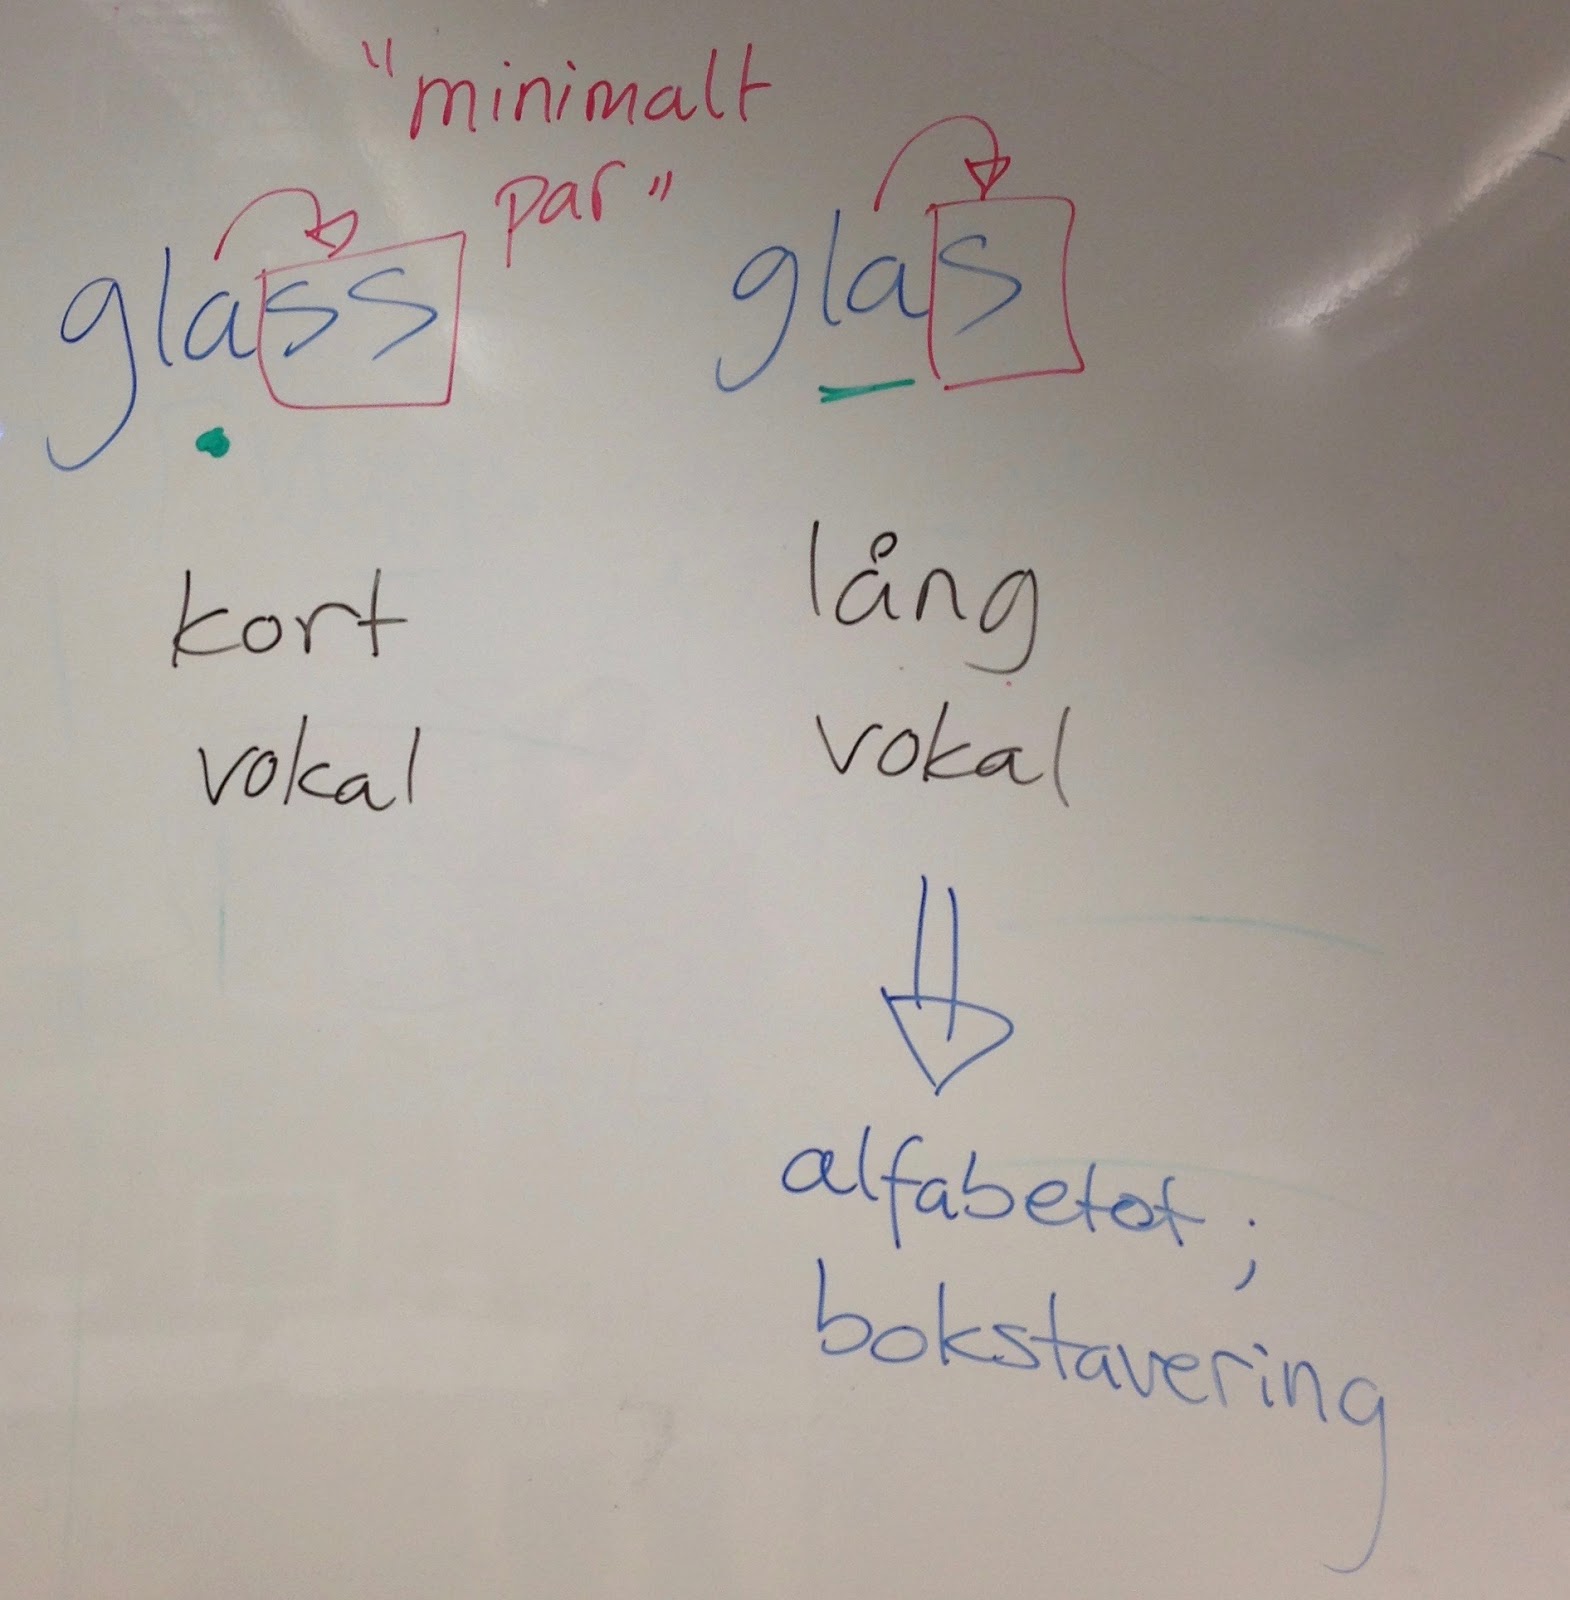 "minimalt
par"
glass
glas
kort
vokal
lång
vokal
alfabetet;
bokstavering